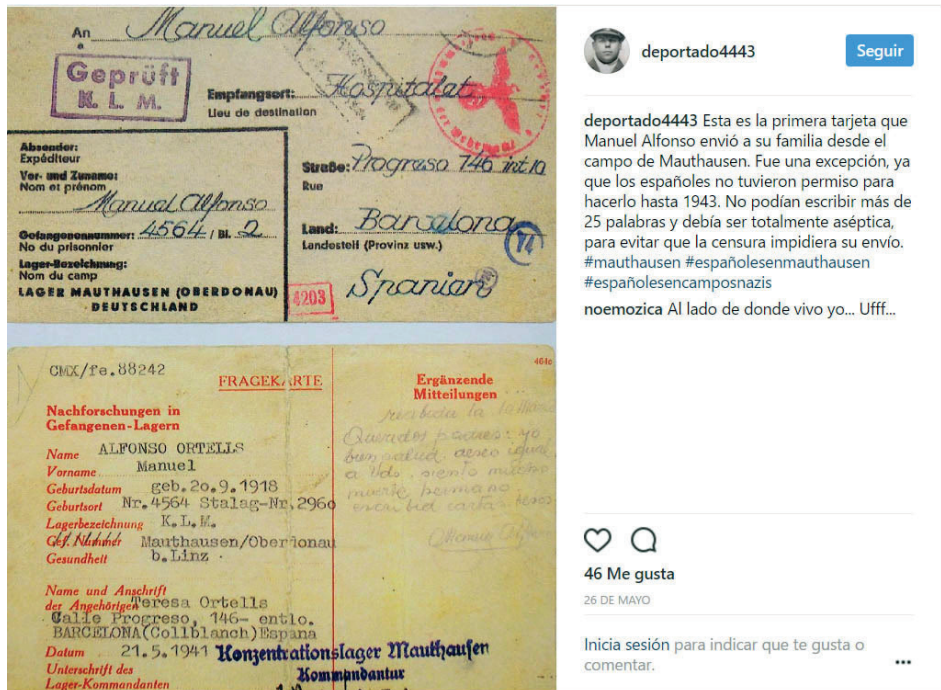 An Manuel Alfonso
Geprüft
K. L. M.
Empfangsort: Hospitalat
Lieu de destination
Absender:
Expéditeur
Vor- und Zuname:
Nom et prénom
Manuel Alfonso
Gefangenennummer: 4564 / Bl. 2
No du prisonnier
Lager-Bezeichnung:
Nom du camp
LAGER MAUTHAUSEN (OBERDONAU)
DEUTSCHLAND
Straße: Progreso 146 int 10
Rue
Land: Barcelona
Landesteil (Provinz usw.)
14
Spanien
4203
464c
CMX/fe.88242
FRAGEKARTE
Nachforschungen in
Gefangenen-Lagern
Name ALFONSO ORTELLS
Vorname Manuel
Geburtsdatum geb.20.9.1918
Geburtsort Nr.4564 Stalag-Nr.2960
Lagerbezeichnung K.L.M.
Gef. Nummer Mauthausen/Oberdonau
Gesundheit b.Linz
Name und Anschrift
der Angehörigen Teresa Ortells
Calle Progreso, 146- entlo.
BARCELONA(Collblanch)Espana
Datum 21.5.1941
Unterschrift des
Lager-Kommandanten
Konzentrationslager Mauthausen
Kommandantur
Ergänzende
Mitteilungen
Queridos padres: yo
buen salud deseo igual
a Vds. siento mucho
muerte hermano
escribid cartas
deportado4443
Seguir
deportado4443 Esta es la primera tarjeta que
Manuel Alfonso envió a su familia desde el
campo de Mauthausen. Fue una excepción, ya
que los españoles no tuvieron permiso para
hacerlo hasta 1943. No podían escribir más de
25 palabras y debía ser totalmente aséptica,
para evitar que la censura impidiera su envío.
#mauthausen #españolesenmauthausen
#españolesencamposnazis
noemozica Al lado de donde vivo yo... Ufff...
46 Me gusta
26 DE MAYO
Inicia sesión para indicar que te gusta o
comentar.